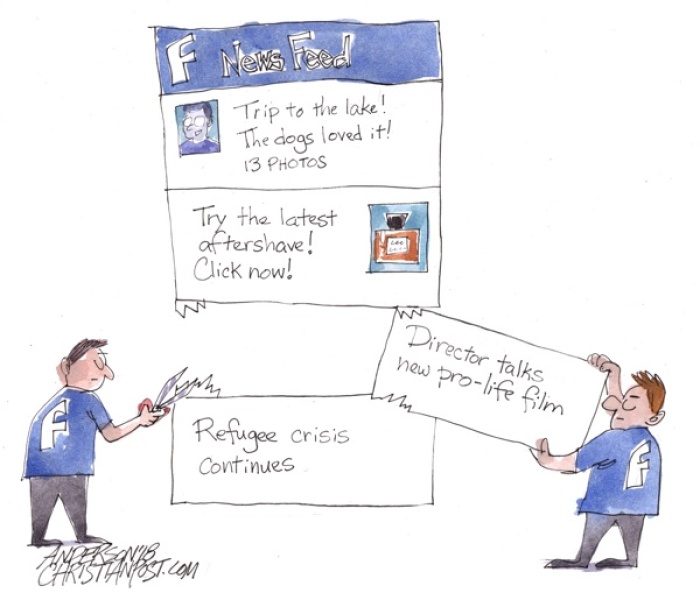 F News Feed
Trip to the lake!
The dogs loved it!
13 PHOTOS
Try the latest
aftershave!
Click now!
Director talks
new pro-life film
Refugee crisis
continues
F
F
ANDERSON'18
CHRISTIANPOST.COM